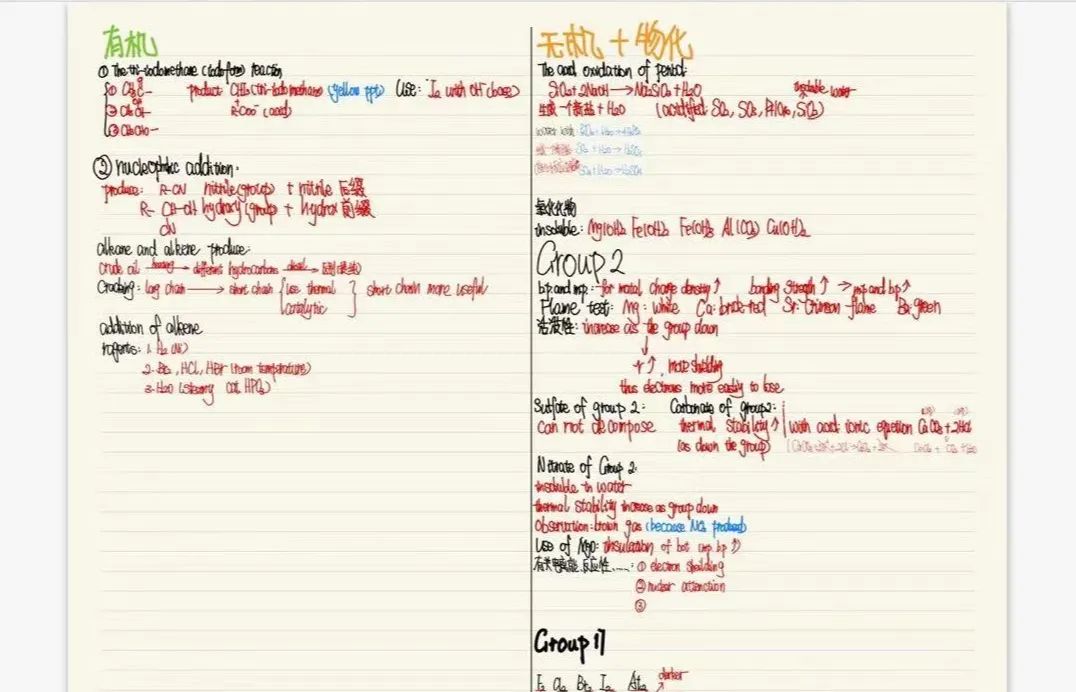 有机
① The tri-iodomethane (iodoform) reaction
① CH3C-
product: CHI3 (tri-iodomethane) (yellow ppt)
Use: I2 with OH- (base)
② CH3CH-
R-COO- (acid)
③ CH3CHO-
② nucleophilic addition:
produce: R-CN nitrile (group) + nitrile 后缀
R- CH-OH hydroxy (group) + hydrox 前缀
CN
alkane and alkene produce:
crude oil heating → different hydrocarbons
Cracking: long chain → short chain { use thermal
catalytic } short chain more useful
addition of alkene
1. H2 (Ni)
2. Br2, HCl, HBr (room temperature)
3. H2O (steam) cat H3PO4)
无机 + 物化
The acid oxidation of period:
SiO2 + 2NaOH → Na2SiO3 + H2O
生成一个盐 + H2O (acidified: SO2, SO3, P4O10, SiO2)
water with:
氢氧化物
insoluble: Mg(OH)2 Fe(OH)2 Fe(OH)3 Al(OH)3 Cu(OH)2
Group 2
bp and mp: for metal charge density↑ bonding strength↑ → mp and bp↑
Flame test: Mg: white Ca: brick-red Sr: Crimson flame Ba: green
活泼性: increase as the group down
r↑, more shielding
thus electrons more easily to lose
Sulfate of group 2: Carbonate of group 2:
can not decompose thermal stability↑ with acid ionic equation CaCO3 + 2HCl
(as down the group)
Nitrate of Group 2:
insoluble in water
thermal stability increase as group down
Observation: brown gas (because NO2 produced)
Use of MgO: insulation of hot (mp bp↑)
有关电离能、反应性……: ① electron shielding
② nuclear attraction
③
Group 17
F2 Cl2 Br2 I2 At2 darker